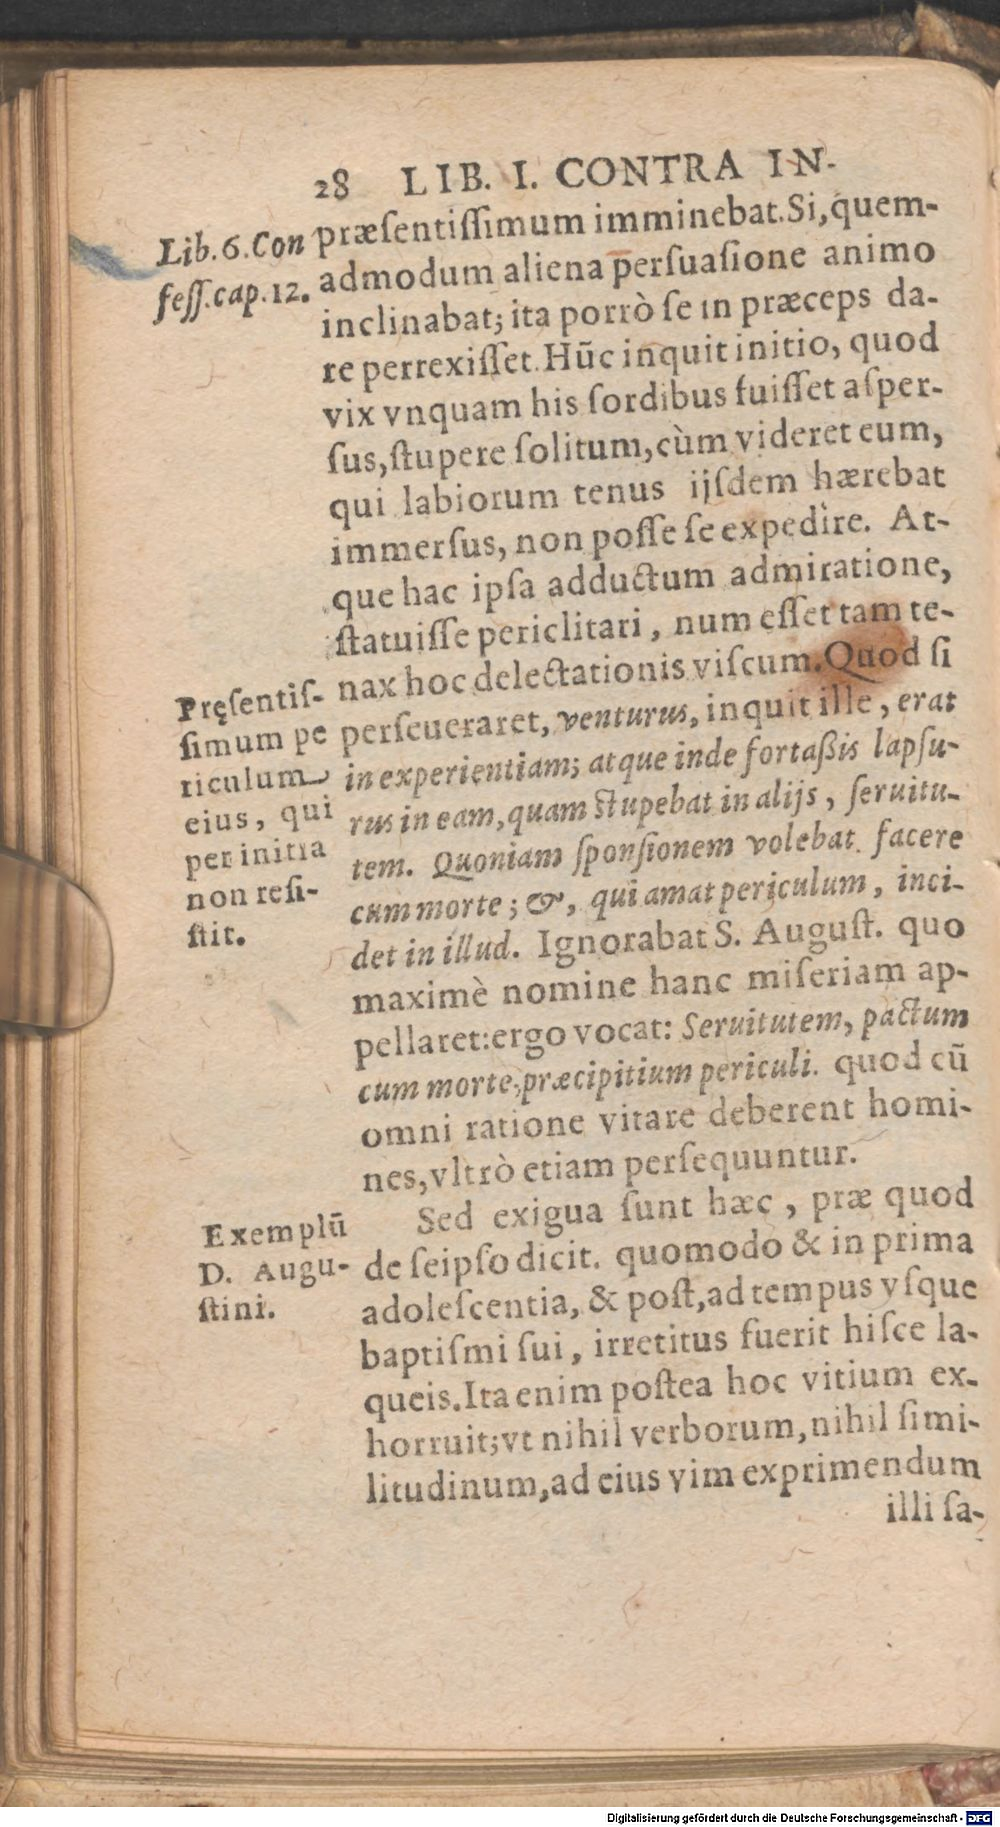 28 LIB. I. CONTRA IN-
Lib. 6. Con
feſſ. cap. 12.
præſentiſſimum imminebat. Si, quem-
admodum aliena perſuaſione animo
inclinabat; ita porrò ſe in præceps da-
re perrexiſſet. Hūc inquit initio, quod
vix vnquam his ſordibus fuiſſet aſper-
ſus, ſtupere ſolitum, cùm videret eum,
qui labiorum tenus ijſdem hærebat
immerſus, non poſſe ſe expedìre. At-
que hac ipſa adductum admiratione,
ſtatuiſſe periclitari, num eſſet tam te-
nax hoc delectationis viſcum. Quod ſi
perſeueraret, venturus, inquit ille, erat
in experientiam; atque inde fortaßis lapſu-
rus in eam, quam ſtupebat in alijs, ſeruitu-
tem. Quoniam ſponſionem volebat facere
cum morte; &, qui amat periculum, inci-
det in illud. Ignorabat S. Auguſt. quo
maximè nomine hanc miſeriam ap-
pellaret: ergo vocat: Seruitutem, pactum
cum morte, præcipitium periculi. quod cū
omni ratione vitare deberent homi-
nes, vltrò etiam perſequuntur.
Pręſentiſ-
ſimum pe
riculum
eius, qui
per initia
non reſi-
ſtit.
Sed exigua ſunt hæc, præ quod
de ſeipſo dicit. quomodo & in prima
adoleſcentia, & poſt, ad tempus vſque
baptiſmi ſui, irretitus fuerit hiſce la-
queis. Ita enim poſtea hoc vitium ex-
horruit; vt nihil verborum, nihil ſimi-
litudinum, ad eius vim exprimendum
Exemplū
D. Augu-
ſtini.
illi ſa-
Digitalisierung gefördert durch die Deutsche Forschungsgemeinschaft - DFG